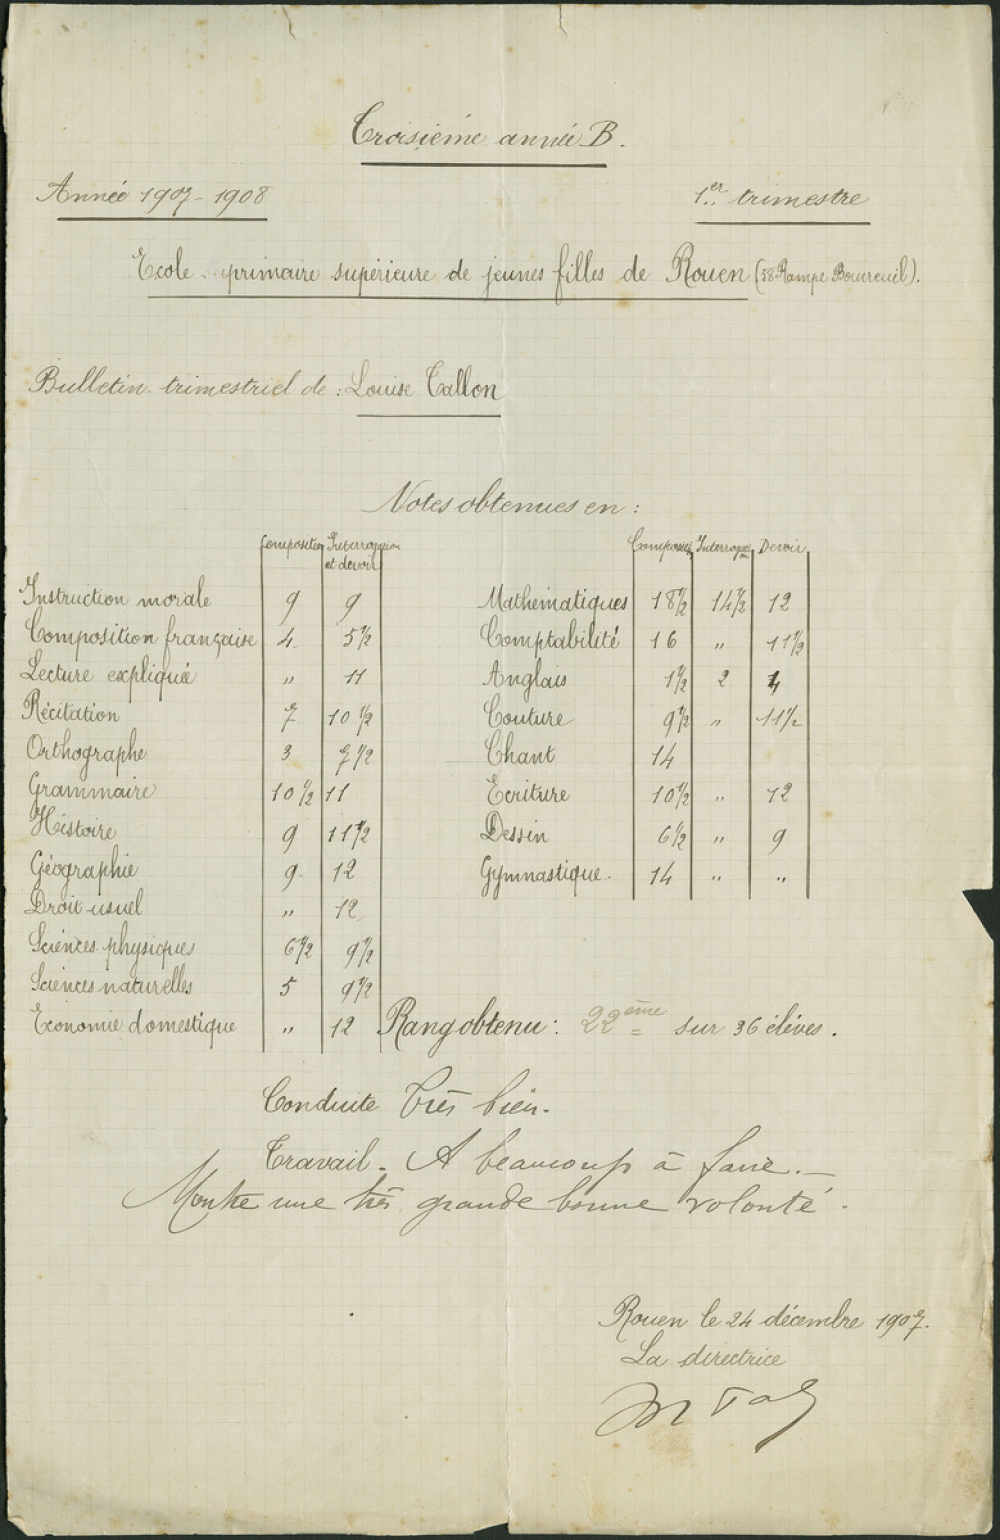 Troisième année B.
Année 1907-1908
1er trimestre
Ecole primaire supérieure de jeunes filles de Rouen (58 Rampe Bouvreuil).
Bulletin trimestriel de : Louise Tallon
Notes obtenues en :
Composition Interrogation et devoir
Instruction morale 9 9
Composition française 4 5 1/2
Lecture expliquée " 11
Récitation 7 10 1/2
Orthographe 3 7 1/2
Grammaire 10 1/2 11
Histoire 9 11 1/2
Géographie 9 12
Droit usuel " 12
Sciences physiques 6 1/2 9 1/2
Sciences naturelles 5 9 1/2
Economie domestique " 12
Devoir
Mathématiques 18 1/2 14 1/2 12
Comptabilité 16 " 11 1/2
Anglais 1 1/2 2 4
Couture 9 1/2 " 11 1/2
Chant 14
Ecriture 10 1/2 " 12
Dessin 6 1/2 " 9
Gymnastique. 14 " "
Rang obtenu : 22ème sur 36 élèves.
Conduite Très bien.
Travail - A beaucoup à faire. -
Montre une très grande bonne volonté.
Rouen le 24 décembre 1907.
La directrice